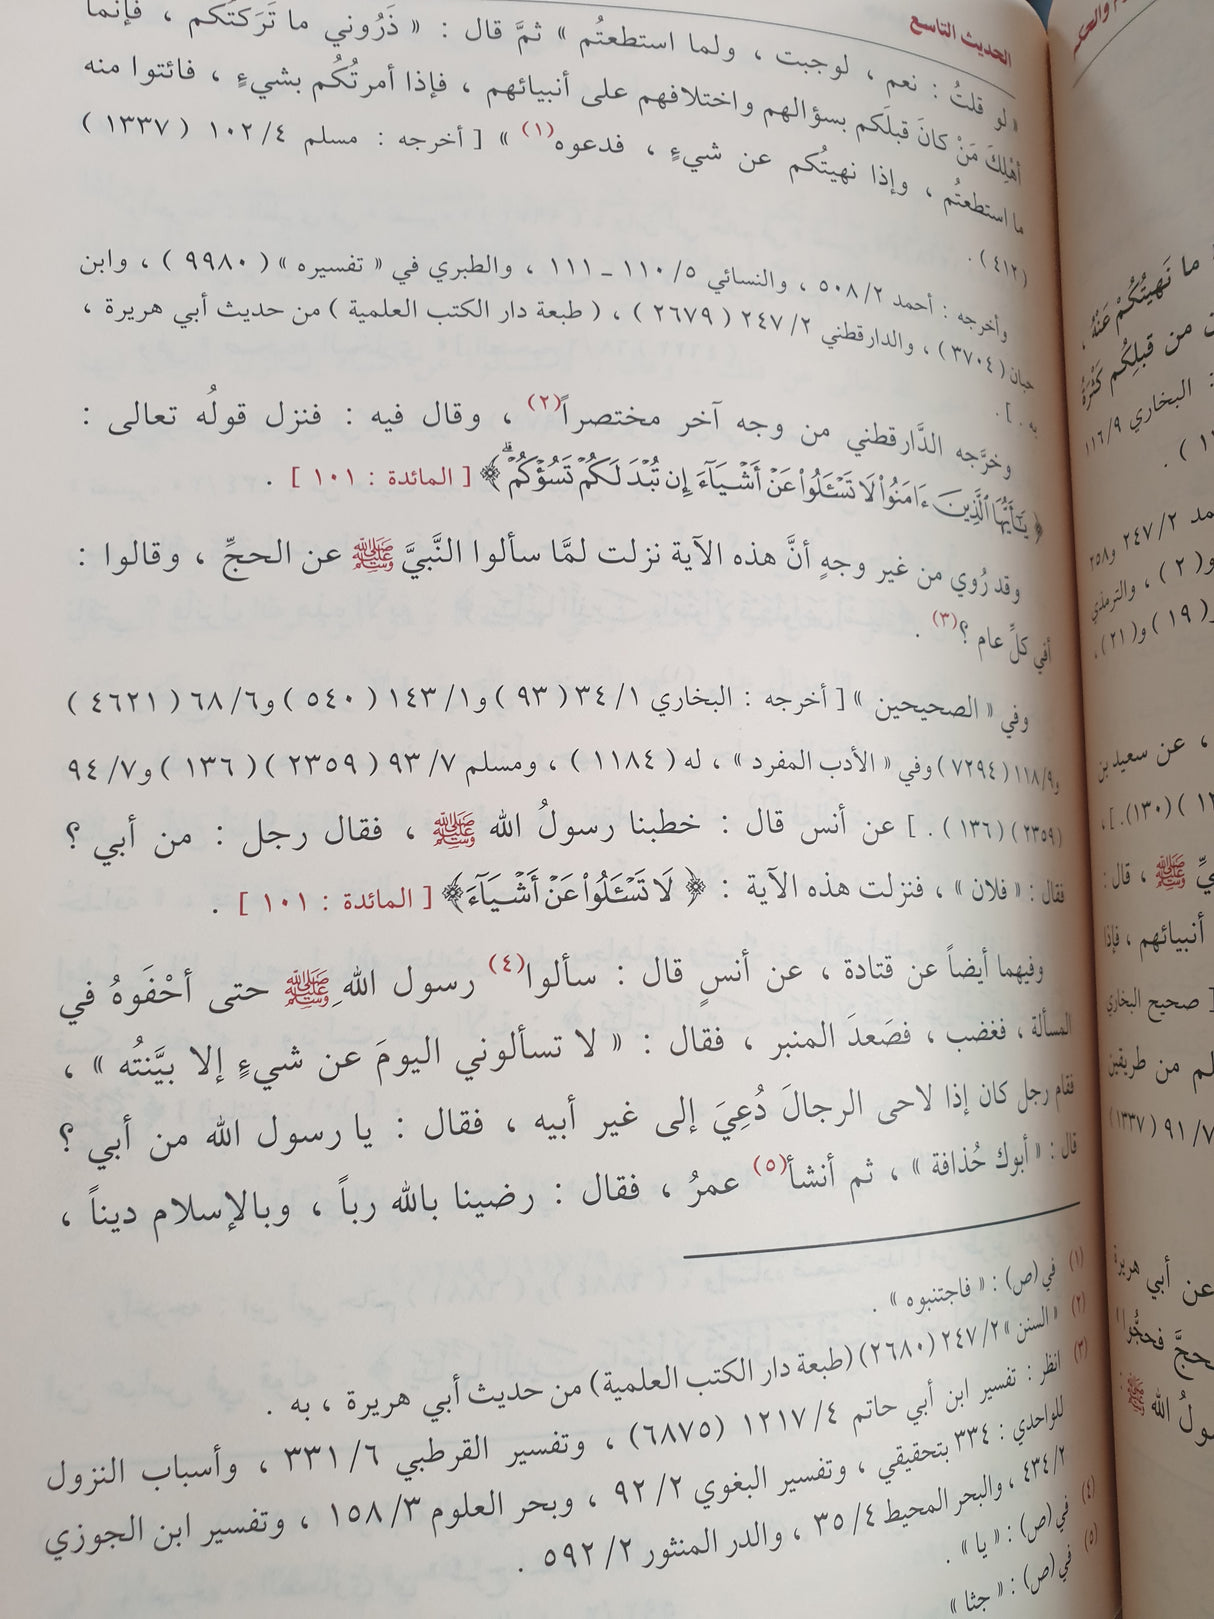 الحديث التاسع
« لو قلتُ : نعم ، لوجبت ، ولما استطعتُم » ثمَّ قال : « ذَرُوني ما تَرَكتُكم ، فإنما
أهْلِكَ مَنْ كانَ قبلَكم بسؤالهم واختلافهم على أنبيائهم ، فإذا أمرتُكُم بشيءٍ ، فائتوا منه
ما استطعتُم ، وإذا نهيتُكم عن شيءٍ ، فدعوه(١) » [ أخرجه : مسلم ٤/ ١٠٢ ( ١٣٣٧ )
( ٤١٢ ) .
وأخرجه : أحمد ٢/ ٥٠٨ ، والنسائي ٥/ ١١٠ ـ ١١١ ، والطبري في « تفسيره » ( ٩٩٨٠ ) ، وابن
حبان ( ٣٧٠٤ ) ، والدارقطني ٢/ ٢٤٧ ( ٢٦٧٩ ) ، ( طبعة دار الكتب العلمية ) من حديث أبي هريرة ،
به . ] .
وخرَّجه الدَّارقطني من وجه آخر مختصراً(٢) ، وقال فيه : فنزل قولُه تعالى :
﴿ يَٰٓأَيُّهَا ٱلَّذِينَ ءَامَنُوا۟ لَا تَسْـَٔلُوا۟ عَنْ أَشْيَآءَ إِن تُبْدَ لَكُمْ تَسُؤْكُمْ ۗ﴾ [ المائدة : ١٠١ ] .
وقد رُوي من غير وجهٍ أنَّ هذه الآية نزلت لمَّا سألوا النَّبيَّ ﷺ عن الحجِّ ، وقالوا :
أفي كلِّ عام ؟(٣) .
وفي « الصحيحين » [ أخرجه : البخاري ١/ ٣٤ ( ٩٣ ) و١/ ١٤٣ ( ٥٤٠ ) و٦/ ٦٨ ( ٤٦٢١ )
و٩/ ١١٨ ( ٧٢٩٤ ) وفي « الأدب المفرد » ، له ( ١١٨٤ ) ، ومسلم ٧/ ٩٣ ( ٢٣٥٩ ) ( ١٣٦ ) و٧/ ٩٤
( ٢٣٥٩ ) ( ١٣٦ ) . ] عن أنس قال : خطبنا رسولُ الله ﷺ ، فقال رجل : من أبي ؟
فقال : « فلان » ، فنزلت هذه الآية : ﴿ لَا تَسْـَٔلُوا۟ عَنْ أَشْيَآءَ﴾ [ المائدة : ١٠١ ] .
وفيهما أيضاً عن قتادة ، عن أنسٍ قال : سألوا(٤) رسول اللهِ ﷺ حتى أحْفَوهُ في
المسألة ، فغضب ، فصَعدَ المنبر ، فقال : « لا تسألوني اليومَ عن شيءٍ إلا بيَّنتُه » ،
فقام رجل كان إذا لاحى الرجالَ دُعِيَ إلى غير أبيه ، فقال : يا رسول الله من أبي ؟
قال : « أبوك حُذافة » ، ثم أنشأ(٥) عمرُ ، فقال : رضينا بالله رباً ، وبالإسلام ديناً ،
(١) في (ص) : « فاجتنبوه » .
(٢) « السنن » ٢/ ٢٤٧ (٢٦٨٠) (طبعة دار الكتب العلمية) من حديث أبي هريرة ، به .
(٣) انظر : تفسير ابن أبي حاتم ٤/ ١٢١٧ (٦٨٧٥) ، وتفسير القرطبي ٦/ ٣٣١ ، وأسباب النزول
للواحدي : ٣٣٤ بتحقيقي ، وتفسير البغوي ٢/ ٩٢ ، وبحر العلوم ٣/ ١٥٨ ، وتفسير ابن الجوزي
٢/ ٤٣٤ ، والبحر المحيط ٤/ ٣٥ ، والدر المنثور ٢/ ٥٩٢ .
(٤) في (ص) : « يا » .
(٥) في (ص) : « جثا »
والحكم
ما نَهيتُكُمْ عَنْهُ ،
من قبلِكُم كَثْرَةُ
: البخاري ٩/ ١١٦
٢/ ٢٤٧ و٢٥٨
و( ٢ ) ، والترمذي
( ١٩ ) و( ٢١ ) ،
، عن سعيد بن
( ١٣٠ ) . ] ،
ﷺ ، قال :
أنبيائهم ، فإذا
[ صحيح البخاري
من طريقين
٧/ ٩١ ( ١٣٣٧ )
عن أبي هريرة
فحجُّوا
الله ﷺ